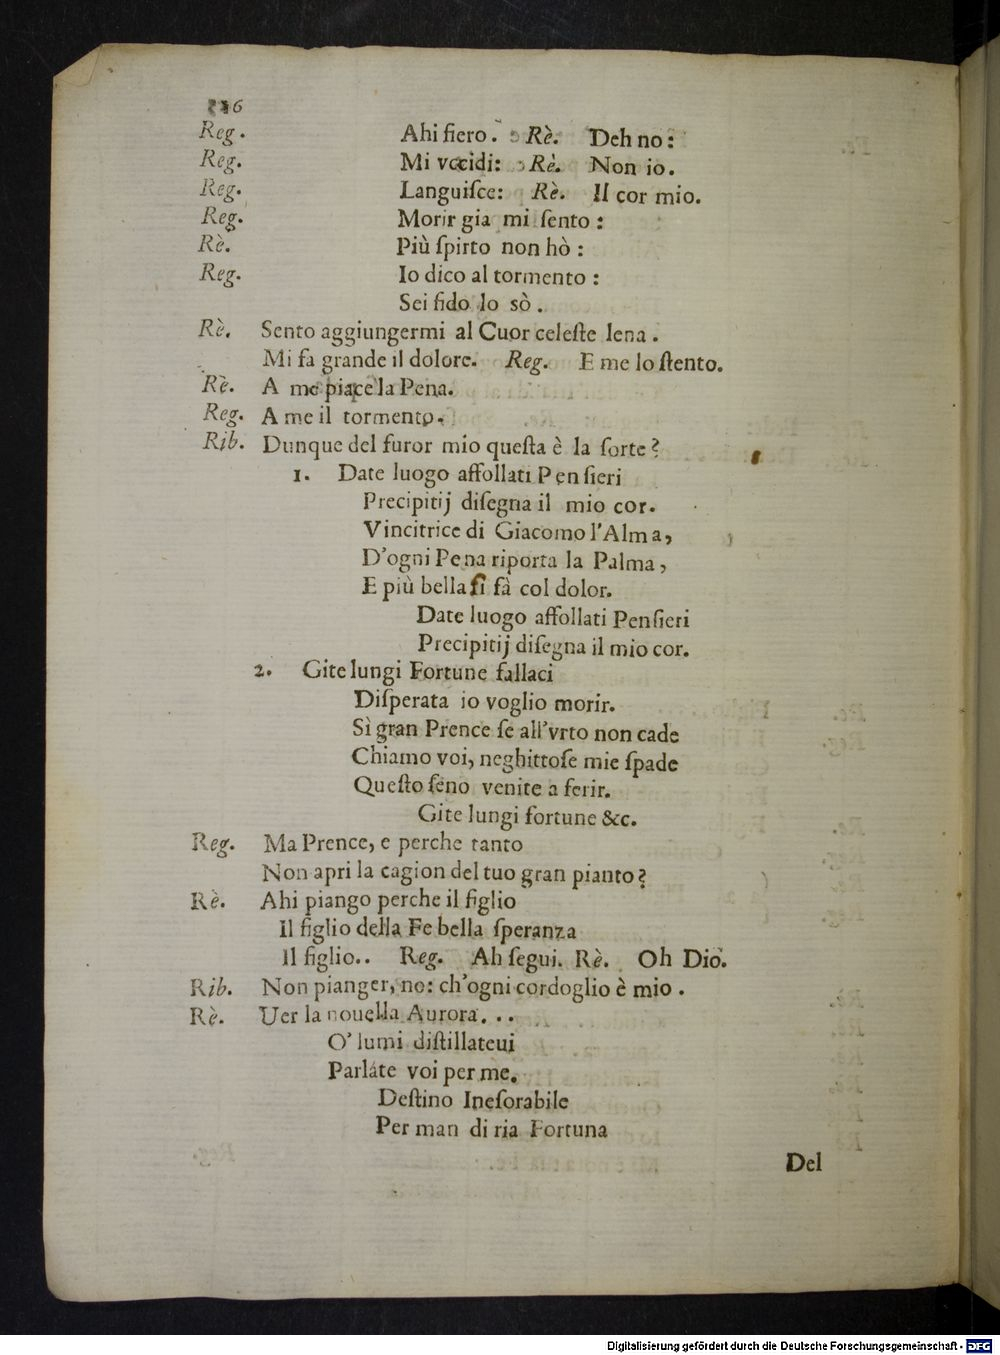 6
Reg. Ahi fiero. Rè. Deh no:
Reg. Mi vccidi: Rè. Non io.
Reg. Languiſce: Rè. Il cor mio.
Reg. Morir gia mi ſento:
Rè. Più ſpirto non hò:
Reg. Io dico al tormento:
Sei fido lo sò.
Rè. Sento aggiungermi al Cuor celeſte lena.
Mi fa grande il dolore. Reg. E me lo ſtento.
Rè. A me piace la Pena.
Reg. A me il tormento.
Rib. Dunque del furor mio queſta è la ſorte?
1. Date luogo affollati Penſieri
Precipitij diſegna il mio cor.
Vincitrice di Giacomo l'Alma,
D'ogni Pena riporta la Palma,
E più bella ſi fà col dolor.
Date luogo affollati Penſieri
Precipitij diſegna il mio cor.
2. Gite lungi Fortune fallaci
Diſperata io voglio morir.
Sì gran Prence ſe all'vrto non cade
Chiamo voi, neghittoſe mie ſpade
Queſto ſeno venite a ferir.
Gite lungi fortune &c.
Reg. Ma Prence, e perche tanto
Non apri la cagion del tuo gran pianto?
Rè. Ahi piango perche il figlio
Il figlio della Fe bella ſperanza
Il figlio.. Reg. Ah ſegui. Rè. Oh Dio.
Rib. Non pianger, no: ch'ogni cordoglio è mio.
Rè. Uer la nouella Aurora...
O' lumi diſtillateui
Parlate voi per me.
Deſtino Ineſorabile
Per man di ria Fortuna
Del
Digitalisierung gefördert durch die Deutsche Forschungsgemeinschaft - DFG